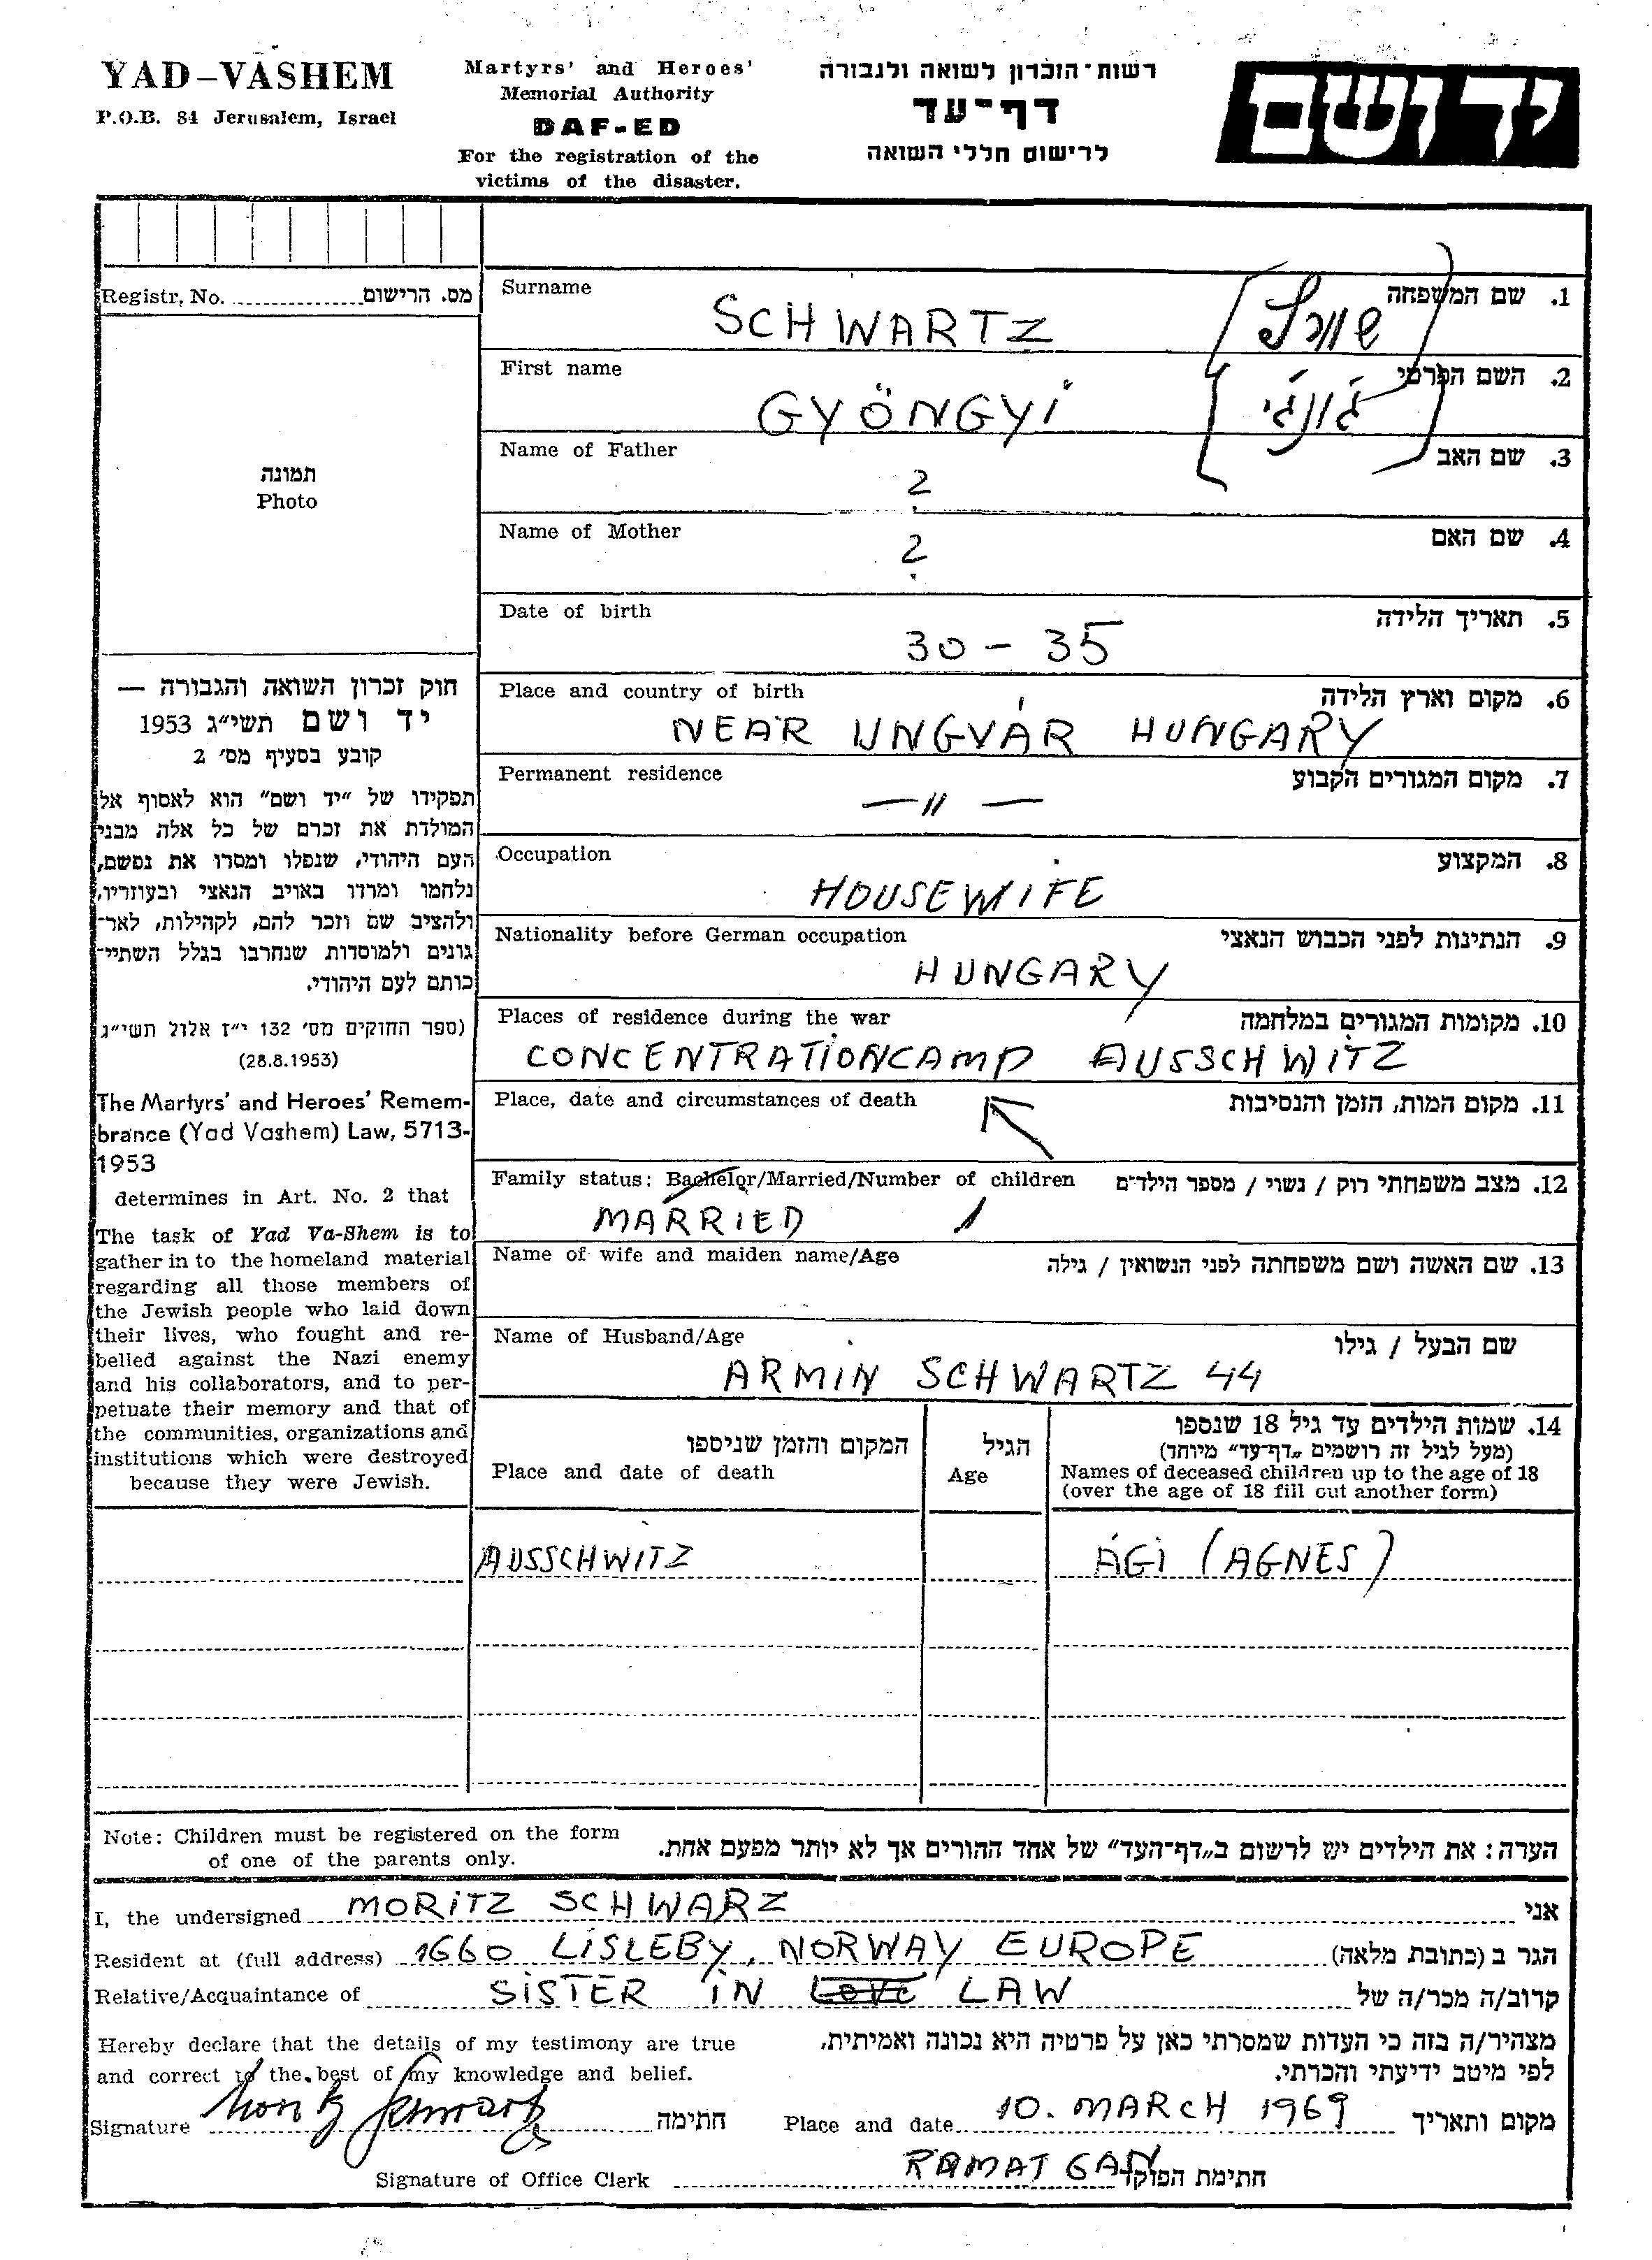 YAD-VASHEM
P.O.B. 84 Jerusalem, Israel
Martyrs' and Heroes'
Memorial Authority
DAF-ED
For the registration of the
victims of the disaster.
רשות-הזכרון לשואה ולגבורה
דף-עד
לרישום חללי השואה
יד ושם
Registr. No. מס. הרישום
תמונה
Photo
חוק זכרון השואה והגבורה —
יד ושם תשי"ג 1953
קובע בסעיף מס' 2
תפקידו של "יד ושם" הוא לאסוף אל
המולדת את זכרם של כל אלה מבני
העם היהודי, שנפלו ומסרו את נפשם,
נלחמו ומרדו באויב הנאצי ובעוזריו,
ולהציב שם וזכר להם, לקהילות, לאר-
גונים ולמוסדות שנחרבו בגלל השתיי-
כותם לעם היהודי.
(ספר החוקים מס' 132 י"ז אלול תשי"ג
(28.8.1953)
The Martyrs' and Heroes' Remem-
brance (Yad Vashem) Law, 5713-
1953
determines in Art. No. 2 that
The task of Yad Va-Shem is to
gather in to the homeland material
regarding all those members of
the Jewish people who laid down
their lives, who fought and re-
belled against the Nazi enemy
and his collaborators, and to per-
petuate their memory and that of
the communities, organizations and
institutions which were destroyed
because they were Jewish.
Surname 1. שם המשפחה
SCHWARTZ שוורץ
First name 2. השם הפרטי
GYÖNGYI ג'ונג'י
Name of Father 3. שם האב
?
Name of Mother 4. שם האם
?
Date of birth 5. תאריך הלידה
30 - 35
Place and country of birth 6. מקום וארץ הלידה
NEAR UNGVÁR HUNGARY
Permanent residence 7. מקום המגורים הקבוע
— " —
Occupation 8. המקצוע
HOUSEWIFE
Nationality before German occupation 9. הנתינות לפני הכבוש הנאצי
HUNGARY
Places of residence during the war 10. מקומות המגורים במלחמה
CONCENTRATIONCAMP AUSSCHWITZ
Place, date and circumstances of death 11. מקום המות, הזמן והנסיבות
Family status: Bachelor/Married/Number of children 12. מצב משפחתי רוק / נשוי / מספר הילדים
MARRIED 1
Name of wife and maiden name/Age 13. שם האשה ושם משפחתה לפני הנשואין / גילה
Name of Husband/Age שם הבעל / גילו
ARMIN SCHWARTZ 44
המקום והזמן שניספו
Place and date of death
הגיל
Age
14. שמות הילדים עד גיל 18 שנספו
(מעל לגיל זה רושמים "דף-עד" מיוחד)
Names of deceased children up to the age of 18
(over the age of 18 fill out another form)
AUSSCHWITZ ÁGI (AGNES)
Note: Children must be registered on the form
of one of the parents only.
הערה: את הילדים יש לרשום ב"דף-העד" של אחד ההורים אך לא יותר מפעם אחת.
I, the undersigned MORITZ SCHWARZ אני
Resident at (full address) 1660 LISLEBY, NORWAY EUROPE הגר ב (כתובת מלאה)
Relative/Acquaintance of SISTER IN LOVE LAW קרוב/ה מכר/ה של
Hereby declare that the details of my testimony are true
and correct to the best of my knowledge and belief.
מצהיר/ה בזה כי העדות שמסרתי כאן על פרטיה היא נכונה ואמיתית,
לפי מיטב ידיעתי והכרתי.
Signature Moritz Schwarz חתימה
Place and date 10. MARCH 1969 מקום ותאריך
RAMAT GAN
Signature of Office Clerk חתימת הפוקד